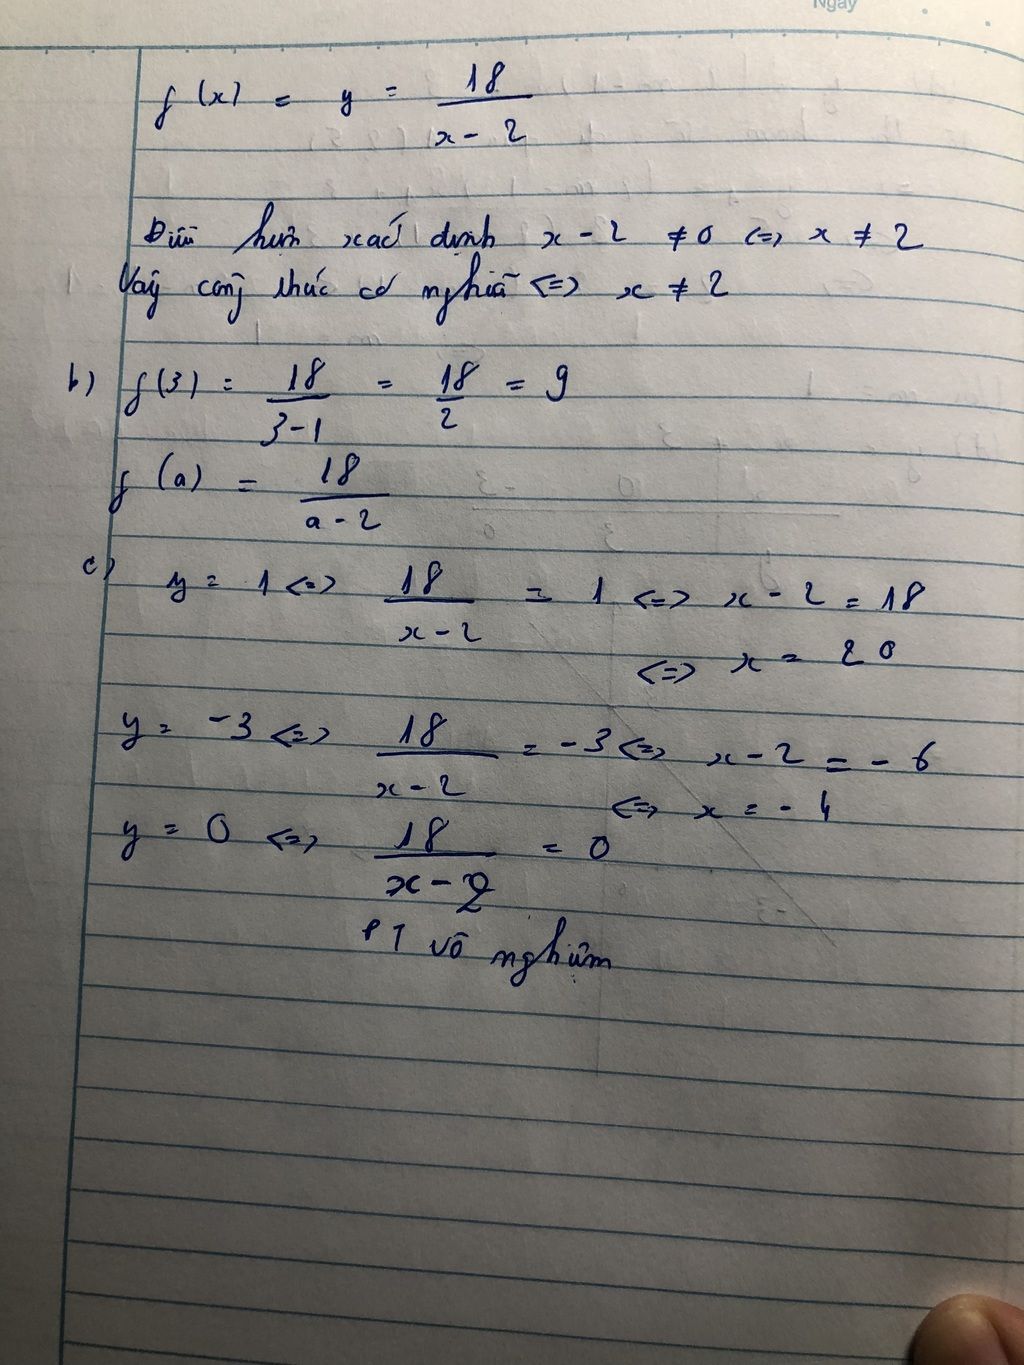 Ngày
f(x) = y = 18/(x - 2)
Điều kiện xác định x - 2 ≠ 0 <=> x ≠ 2
Vậy công thức có nghĩa <=> x ≠ 2
b) f(3) = 18/(3 - 1) = 18/2 = 9
f(a) = 18/(a - 2)
c) y = 1 <=> 18/(x - 2) = 1 <=> x - 2 = 18
<=> x = 20
y = -3 <=> 18/(x - 2) = -3 <=> x - 2 = -6
<=> x = -4
y = 0 <=> 18/(x - 2) = 0
PT vô nghiệm